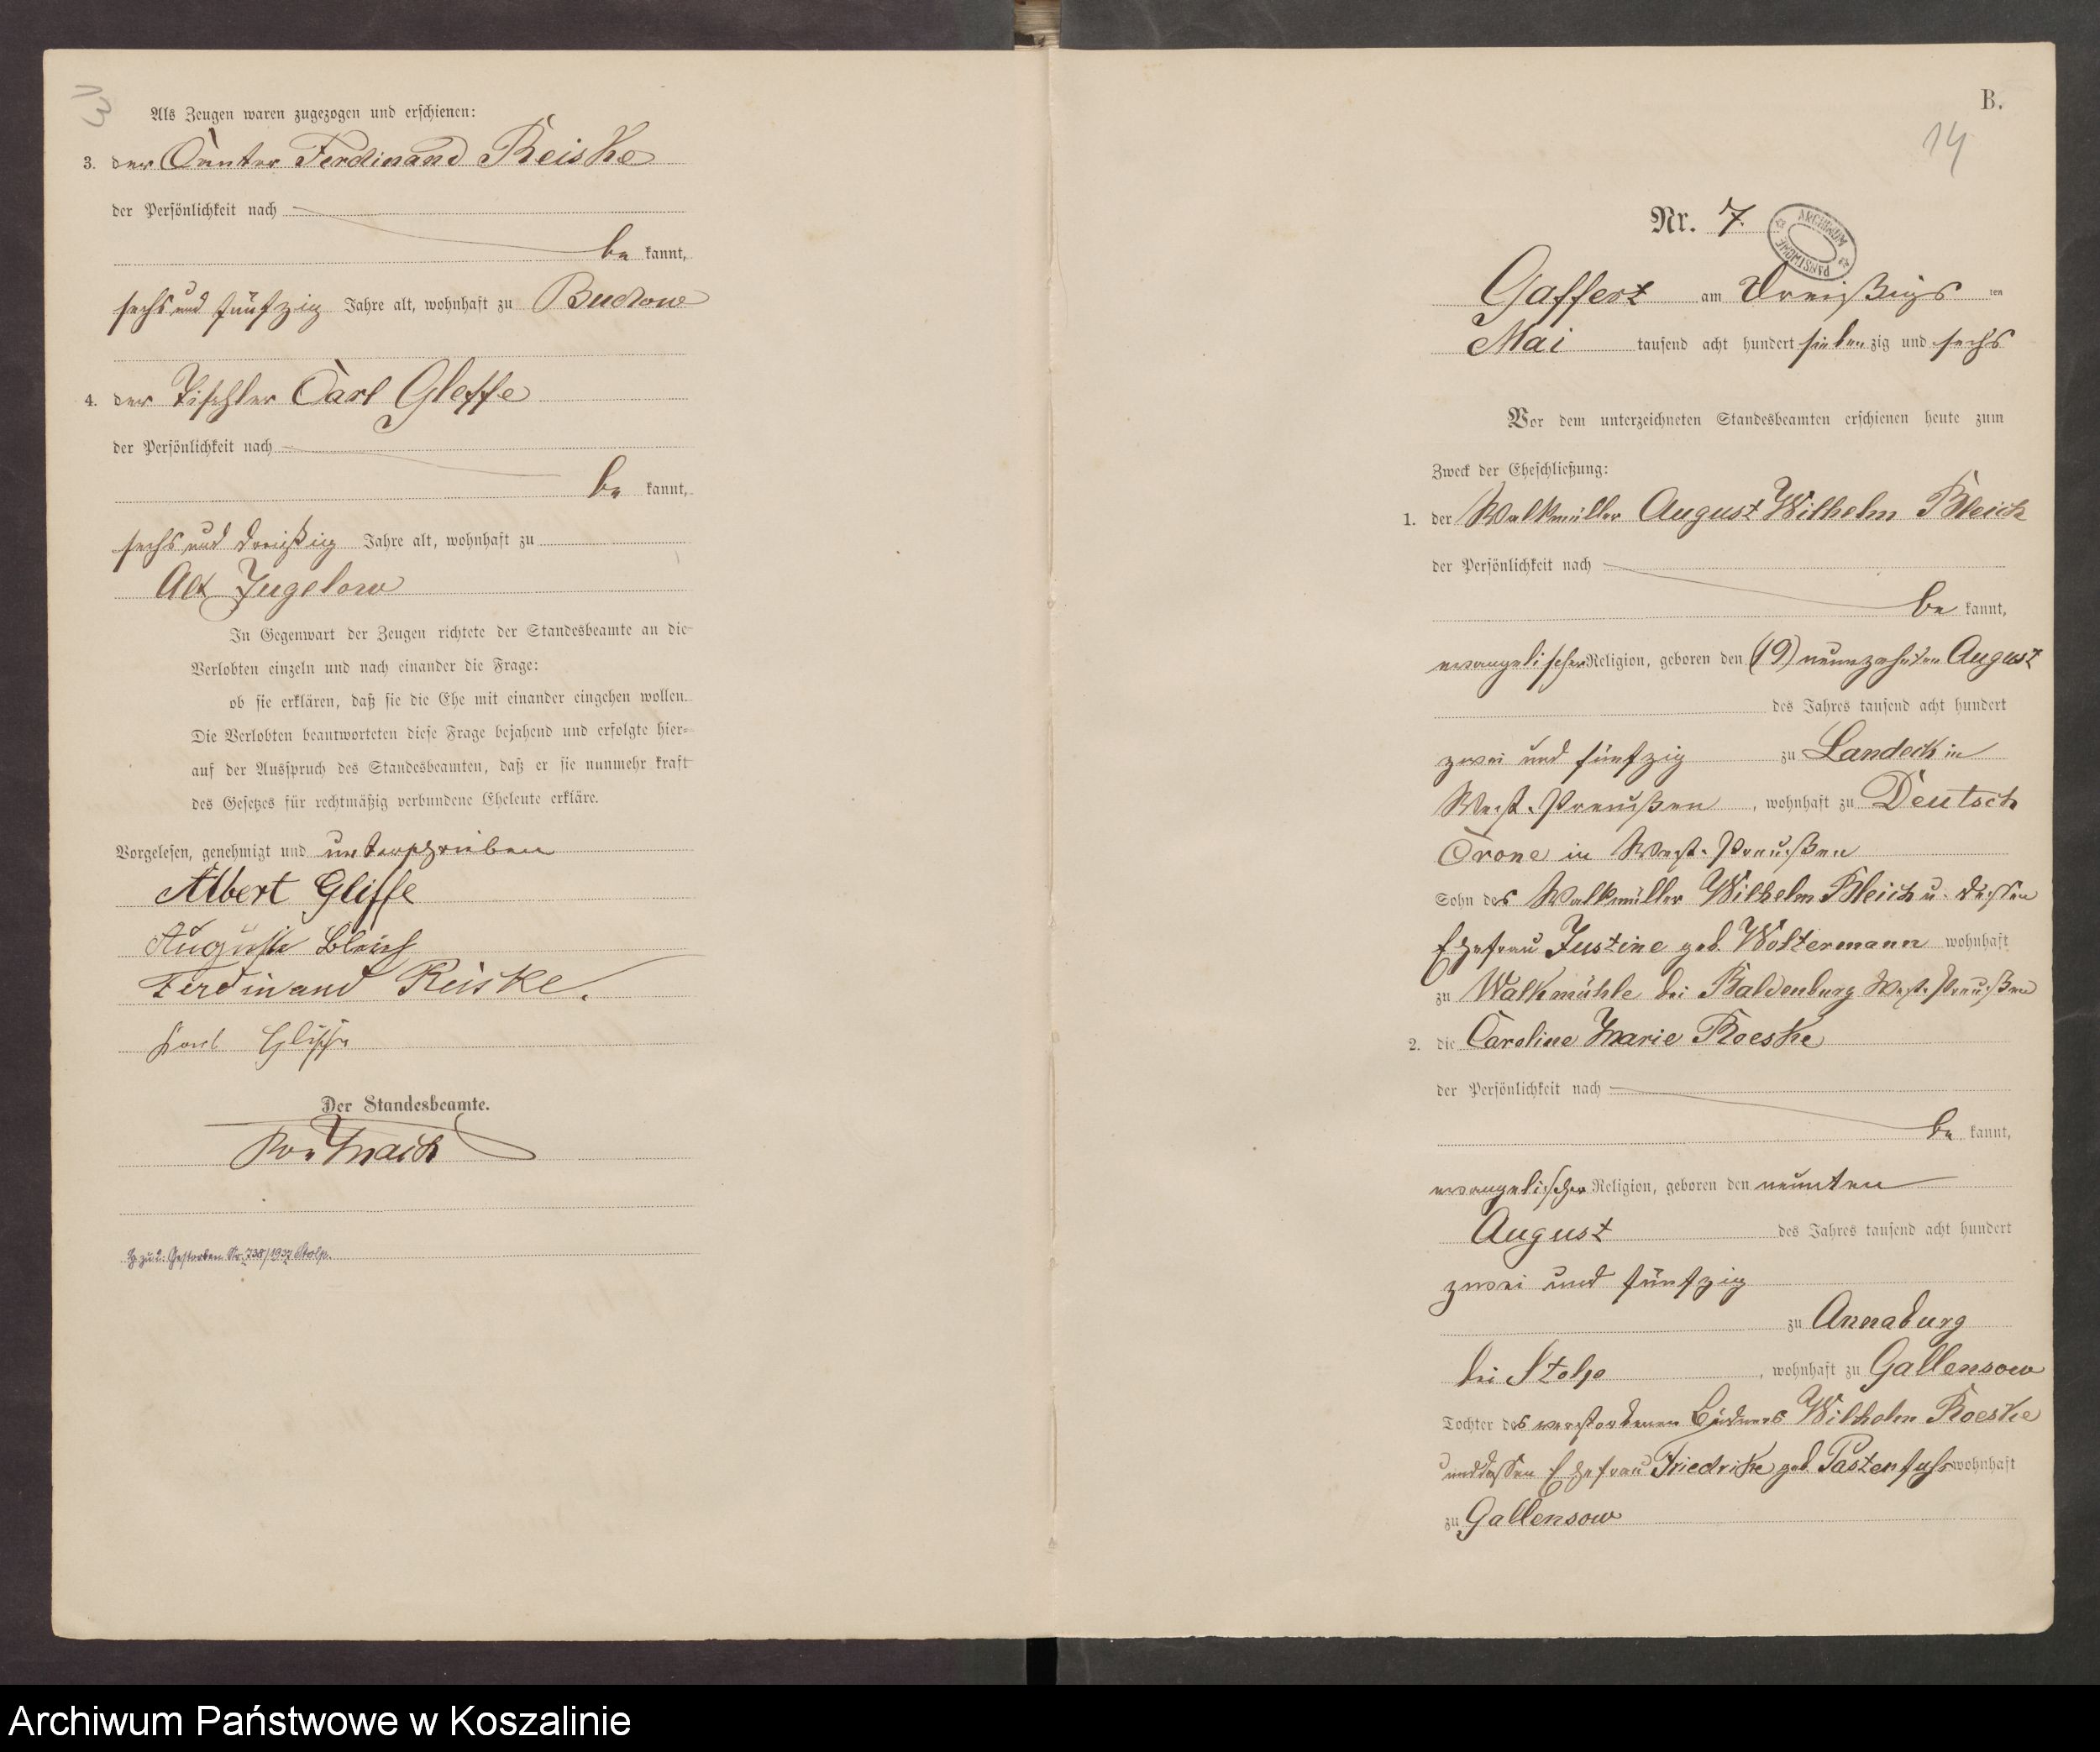 13
Als Zeugen waren zugezogen und erschienen:
3. der Cantor Ferdinand Reiske
der Persönlichkeit nach
be kannt,
sechs und fünfzig Jahre alt, wohnhaft zu Buckow
4. der Tischler Carl Gleffe
der Persönlichkeit nach
be kannt,
sechs und dreißig Jahre alt, wohnhaft zu
Alt Jugelow
In Gegenwart der Zeugen richtete der Standesbeamte an die
Verlobten einzeln und nach einander die Frage:
ob sie erklären, daß sie die Ehe mit einander eingehen wollen.
Die Verlobten beantworteten diese Frage bejahend und erfolgte hier=
auf der Ausspruch des Standesbeamten, daß er sie nunmehr kraft
des Gesetzes für rechtmäßig verbundene Eheleute erkläre.
Vorgelesen, genehmigt und unterschrieben
Albert Gliffe
Auguste Bleich
Ferdinand Reiske.
Karl
Der Standesbeamte.
zu 2: Gestorben Nr. 738/1937 Stolp.
B.
14
Nr. 7.
ARCHIWUM PAŃSTWOWE
Gaffert am Dreißigs ten
Mai tausend acht hundert siebenzig und sechs
Vor dem unterzeichneten Standesbeamten erschienen heute zum
Zweck der Eheschließung:
1. der Walkmüller August Wilhelm Bleich
der Persönlichkeit nach
be kannt,
evangelischer Religion, geboren den (19) neunzehnten August
des Jahres tausend acht hundert
zwei und fünfzig zu Landeck in
West-Preußen, wohnhaft zu Deutsch
Crone in West-Preußen
Sohn des Walkmüller Wilhelm Bleich u. dessen
Ehefrau Justine geb. Woltermann wohnhaft
zu Walkmühle bei Baldenburg West-Preußen
2. die Caroline Marie Roeske
der Persönlichkeit nach
be kannt,
evangelischer Religion, geboren den neunten
August des Jahres tausend acht hundert
zwei und fünfzig
zu Annaburg
bei Stolp, wohnhaft zu Gallensow
Tochter des verstorbenen Büdners Wilhelm Roeske
und dessen Ehefrau Friedrike geb. Pastenfuhs wohnhaft
zu Gallensow
Archiwum Państwowe w Koszalinie